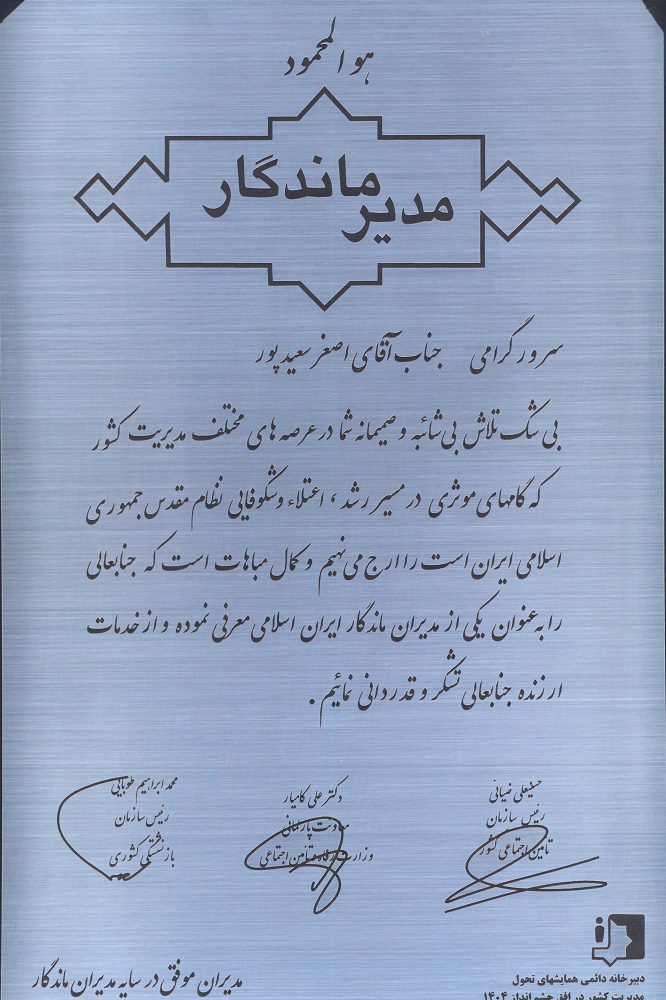 هوالمحمود
مدیر ماندگار
سرور گرامی جناب آقای اصغر سعیدپور
بی شک تلاش بی شائبه و صمیمانه شما در عرصه های مختلف مدیریت کشور
که گامهای موثری در مسیر رشد ، اعتلاء و شکوفایی نظام مقدس جمهوری
اسلامی ایران است را ارج می نهیم و کمال مباهات است که جنابعالی
را به عنوان یکی از مدیران ماندگار ایران اسلامی معرفی نموده و از خدمات
ارزنده جنابعالی تشکر و قدردانی نمائیم .
حسینعلی ضیائی
رئیس سازمان
تامین اجتماعی کشور
دکتر علی کامیار
معاونت پارلمانی
وزارت رفاه و تامین اجتماعی
محمد ابراهیم طوبایی
رئیس سازمان
بازنشستگی کشوری
دبیرخانه دائمی همایشهای تحول
مدیریت کشور در افق چشم انداز ۱۴۰۴
مدیران موفق در سایه مدیران ماندگار